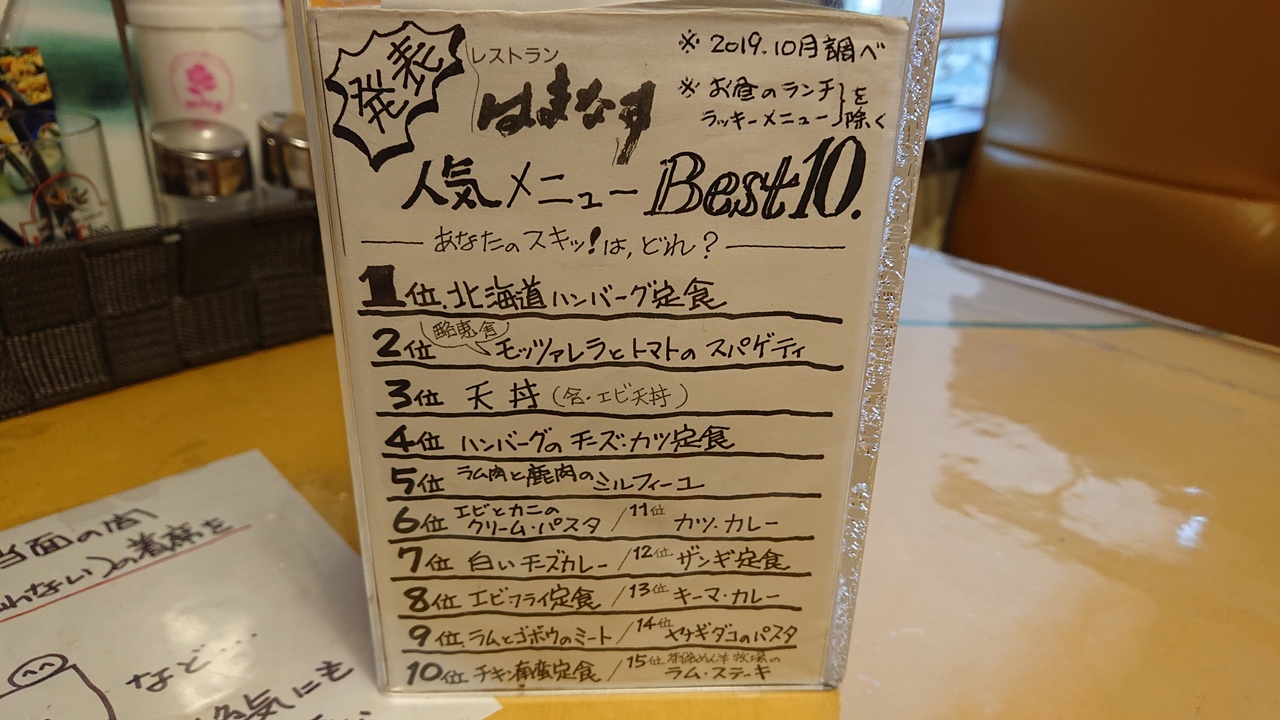 発表
レストラン
はまなす
※ 2019.10月調べ
※ お昼のランチ
ラッキーメニュー}を除く
人気メニュー Best10.
あなたのスキッ!は,どれ?
1位.北海道ハンバーグ定食
酪恵舎
2位 モッツァレラとトマトの スパゲティ
3位 天丼(名・エビ天丼)
4位 ハンバーグの チーズ・カツ定食
5位 ラム肉と鹿肉のミルフィーユ
6位 エビとカニのクリーム・パスタ/11位 カツ・カレー
7位 白いチーズカレー/12位 ザンギ定食
8位 エビフライ定食/13位 キーマ・カレー
9位.ラムとゴボウのミート/14位 ヤナギダコのパスタ
10位 チキン南蛮定食/15位 めん羊牧場の ラム・ステーキ
当面の間
の着席を
など…
気にも